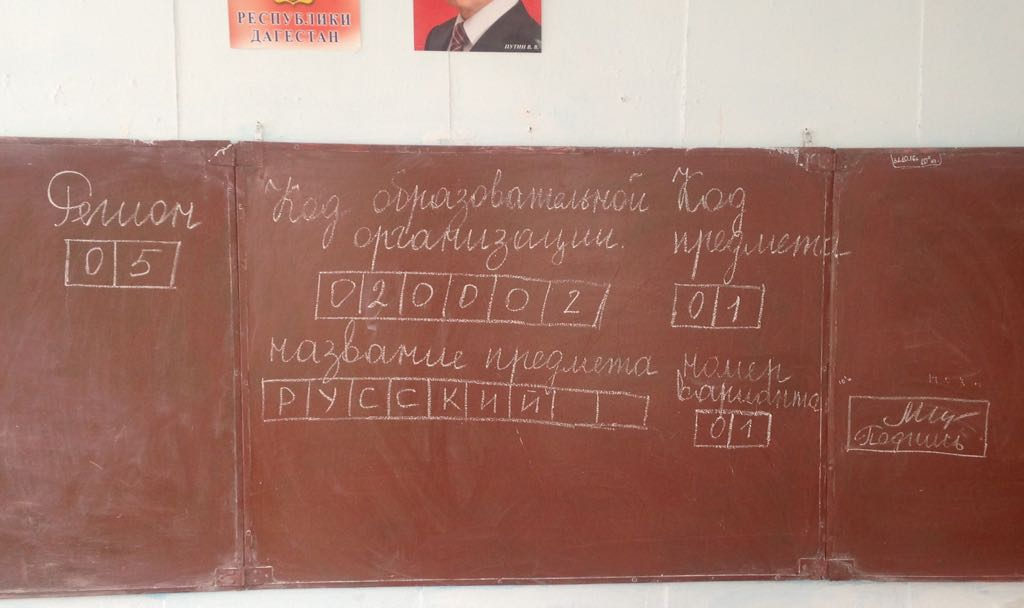 РЕСПУБЛИКИ
ДАГЕСТАН
ПУТИН В. В.
Регион
05
Код образовательной
организации.
020002
Код
предмета
01
название предмета
РУССКИЙ
номер
варианта
01
Подпись